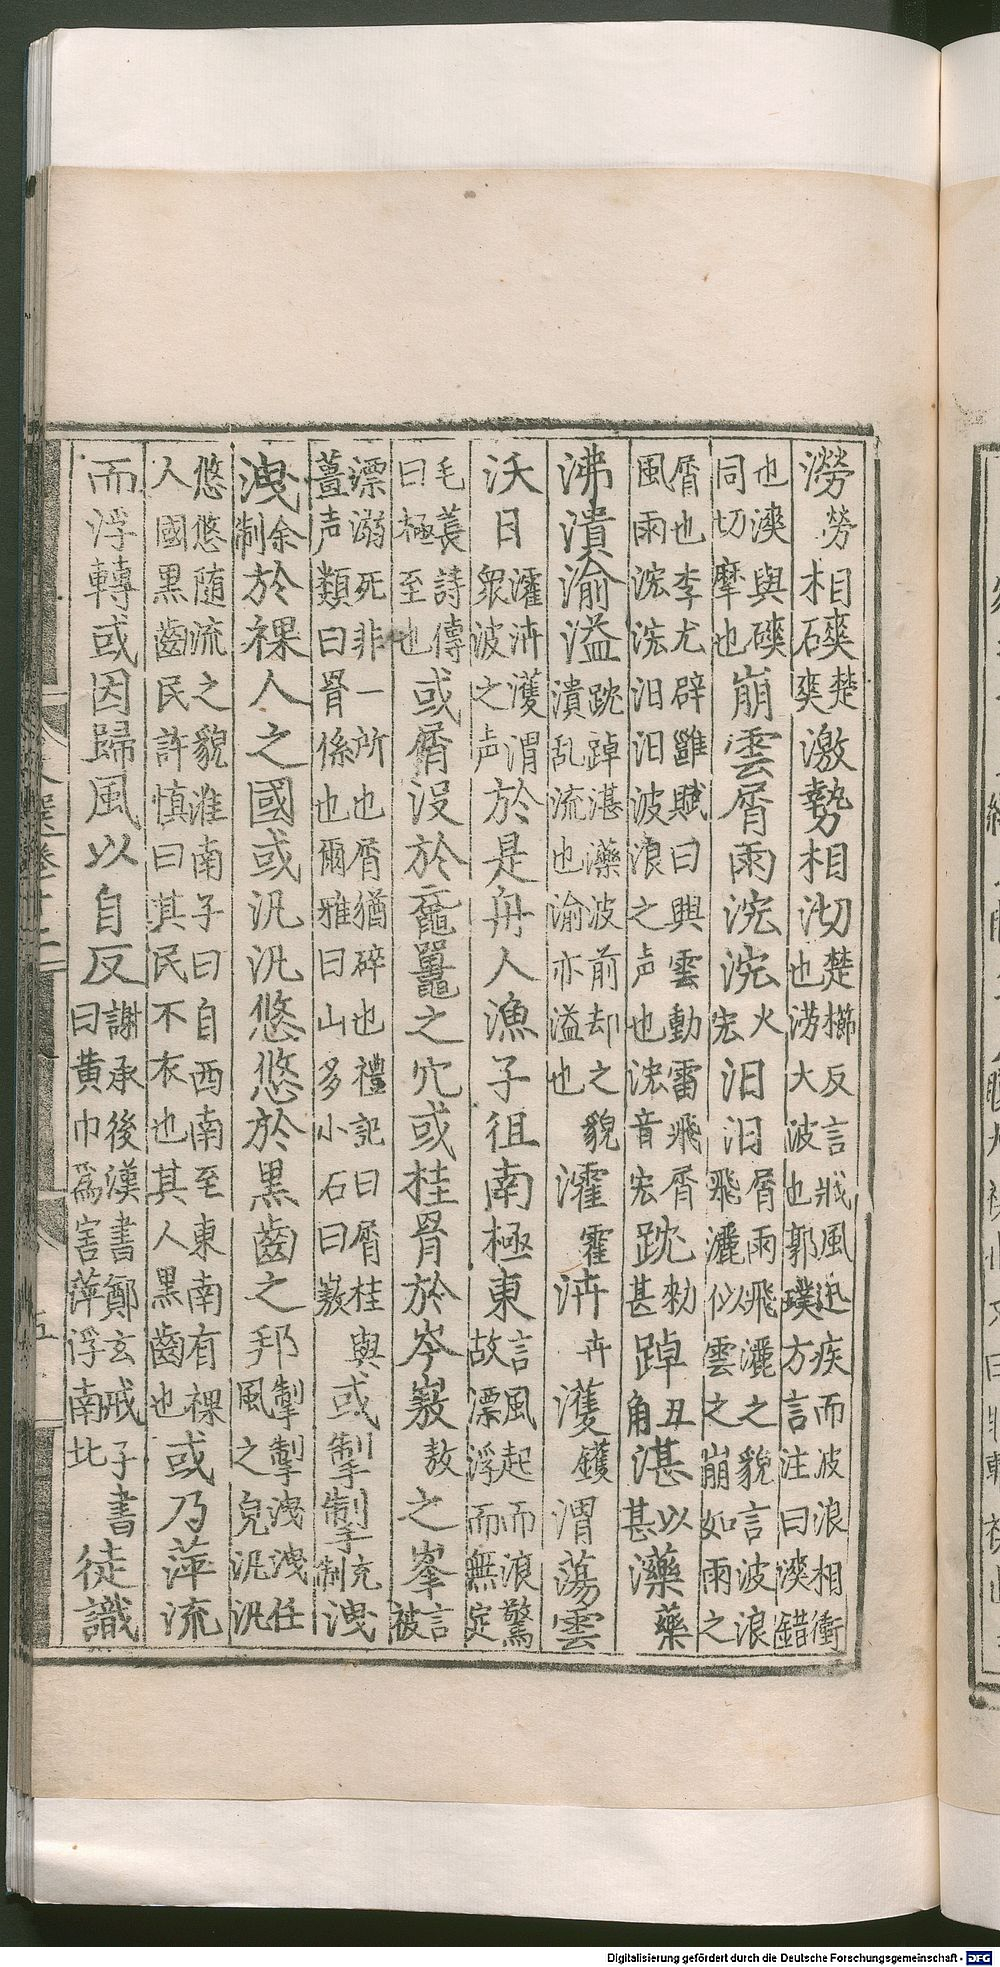 澇勞相磢楚爽激勢相沏楚櫛反言戒風迅疾而波浪相衝也澇大波也郭璞方言注曰漺錯
也漺與磢同切摩也崩雲屑雨浤浤火宏汩汩屑雨飛灑之貌言波浪飛灑似雲之崩如雨之
屑也李尤辟雝賦曰興雲動雷飛屑風雨浤浤汩汩波浪之声也浤音宏踸勑甚踔丑角湛以甚藥藥
沸潰渝溢踸踔湛藥波前却之貌潰乱流也渝亦溢也濩霍泋卉濩鑊渭蕩雲
沃日濩泋濩渭衆波之声於是舟人漁子徂南極東言風起而浪驚故漂浮而無定
毛萇詩傳曰極至也或屑沒於黿鼉之穴或挂罥於岑嶅敖之峯言被
漂溺死非一所也屑猶碎也禮記曰屑桂與薑声類曰罥係也爾雅曰山多小石曰嶅或掣掣充制洩
洩余制於裸人之國或汎汎悠悠於黑齒之邦掣掣洩洩任風之皃汎汎
悠悠随流之貌淮南子曰自西南至東南有裸人國黑齒民許慎曰其民不衣也其人黑齒也或乃萍流
而浮轉或因歸風以自反謝承後漢書鄭玄戒子書曰黄巾爲害萍浮南北徒識
五
Digitalisierung gefördert durch die Deutsche Forschungsgemeinschaft - DFG